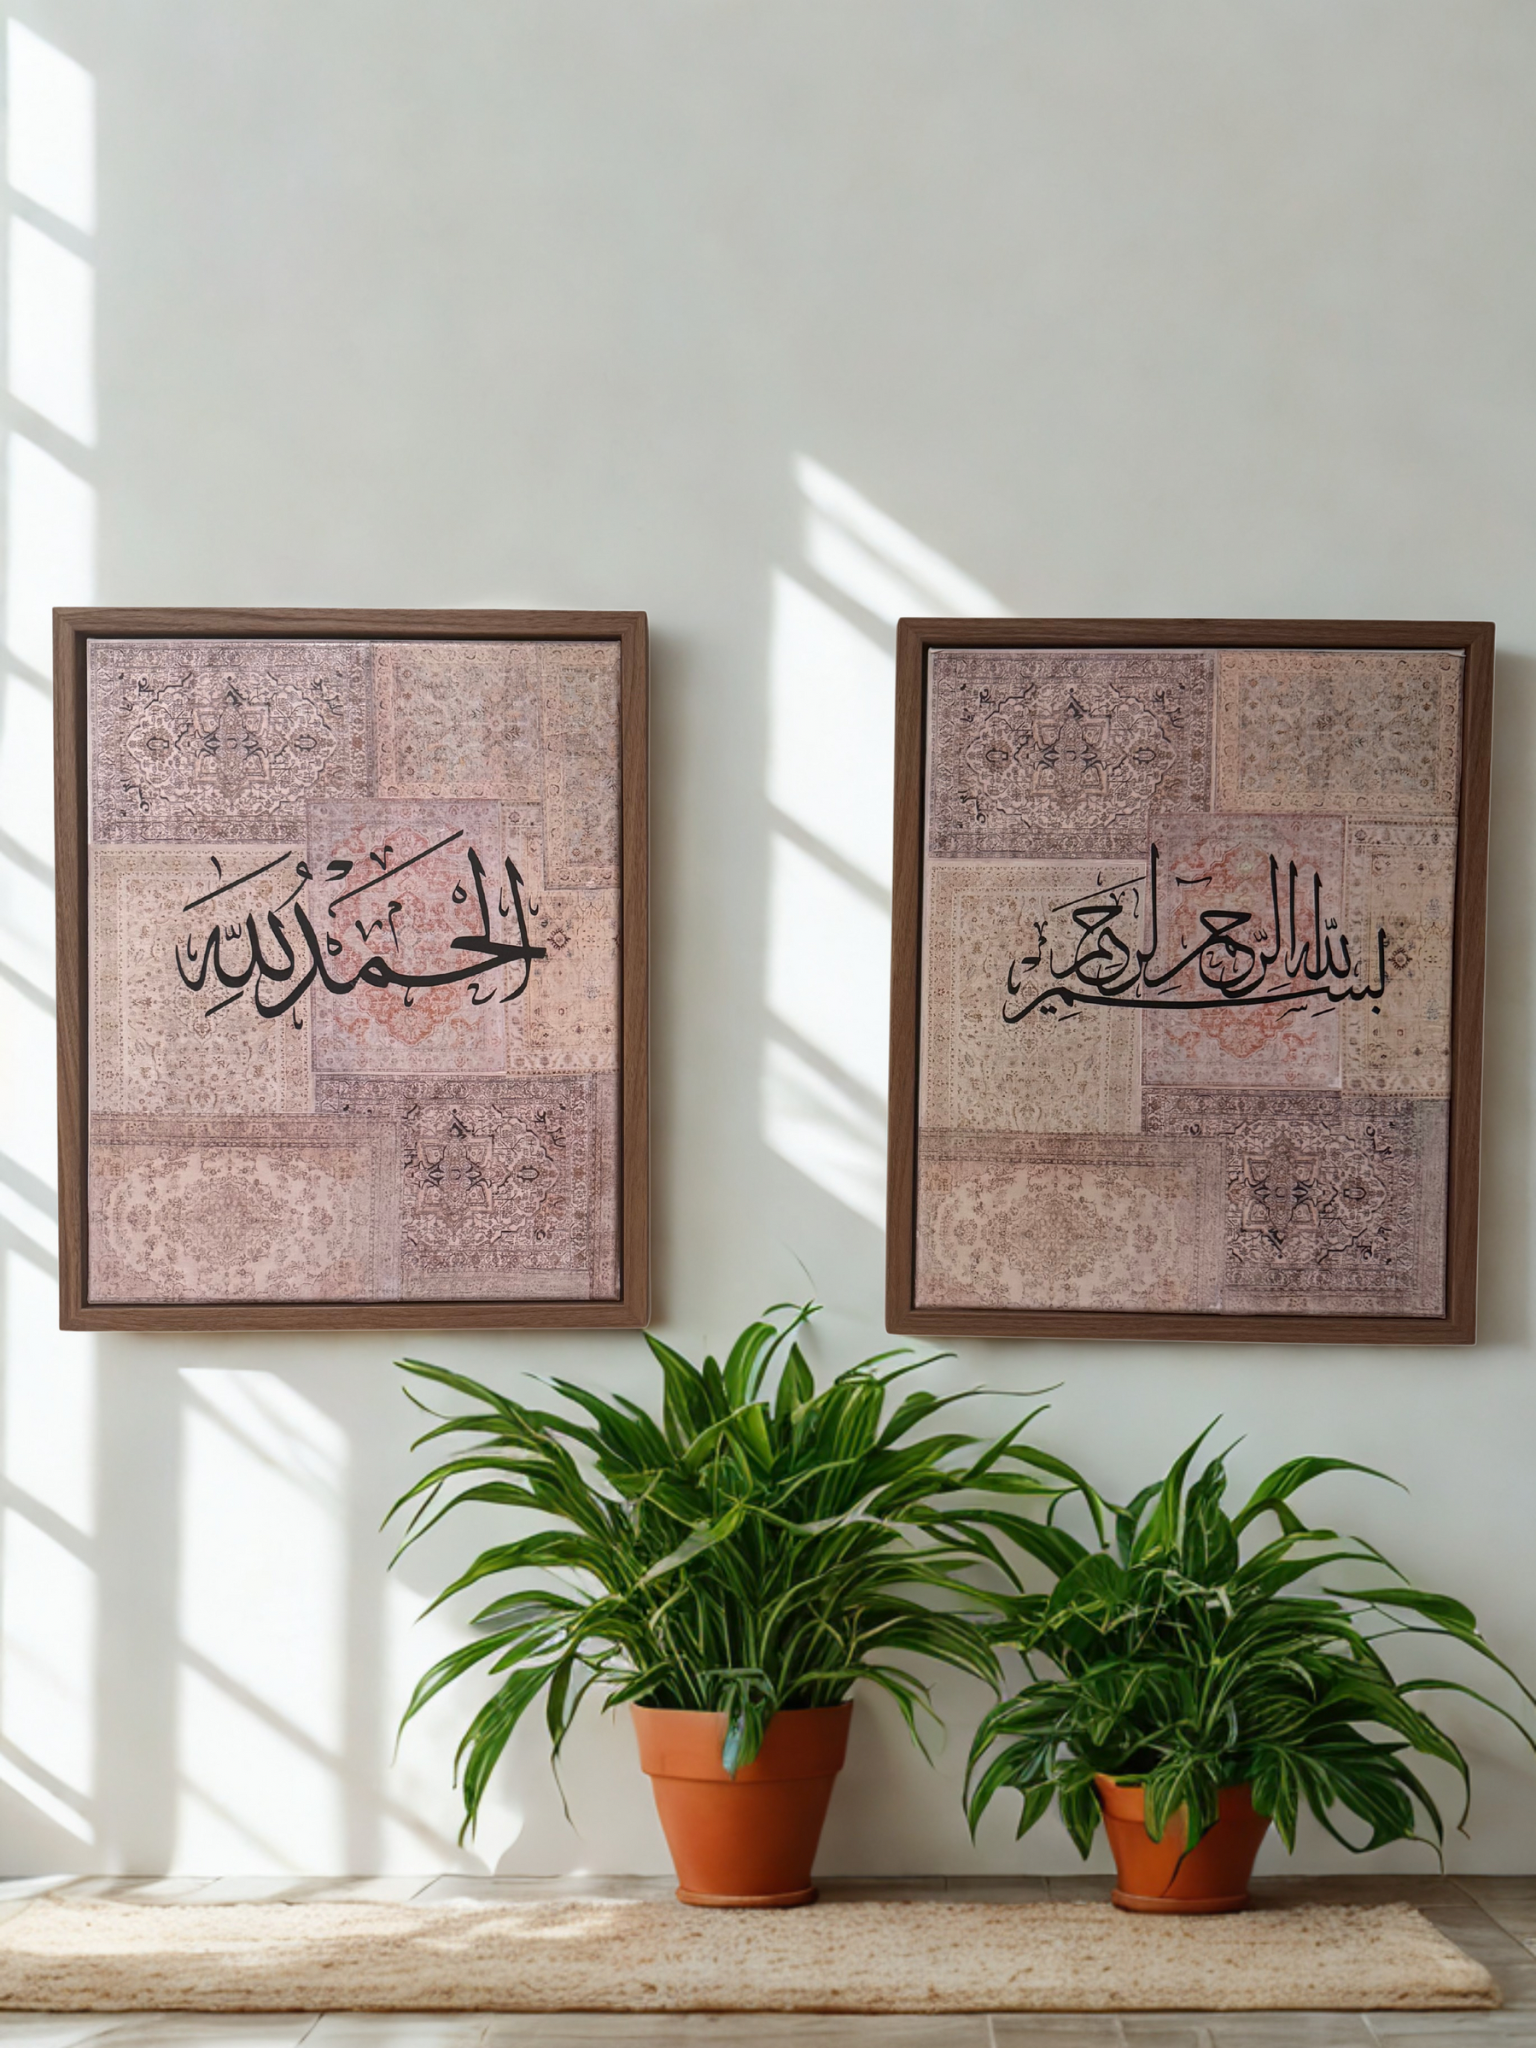 الحمد لله
بسم الله الرحمن الرحيم